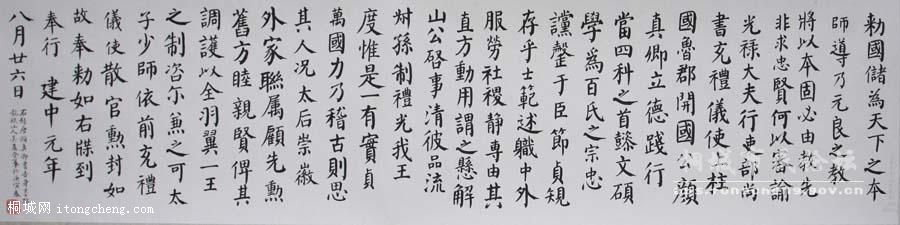 勅國儲為天下之本
師導乃元良之教
將以本固必由教先
非求忠賢何以審諭
光祿大夫行吏部尚
書充禮儀使上柱
國魯郡開國公顔
真卿立德踐行
當四科之首懿文碩
學為百氏之宗忠
讜罄于臣節貞規
存乎士範述職中外
服勞社稷靜專由其
直方動用謂之懸解
山公啓事清彼品流
叔孫制禮光我王
度惟是一有實貞
萬國力乃稽古則思
其人況太后崇徽
外家聯属顧先勲
舊方睦親賢俾其
調護以全羽翼一王
之制咨尔兼之可太
子少師依前充禮
儀使散官勲封如
故奉勅如右牒到
奉行 建中元年
八月廿六日
桐城网 itongcheng.com